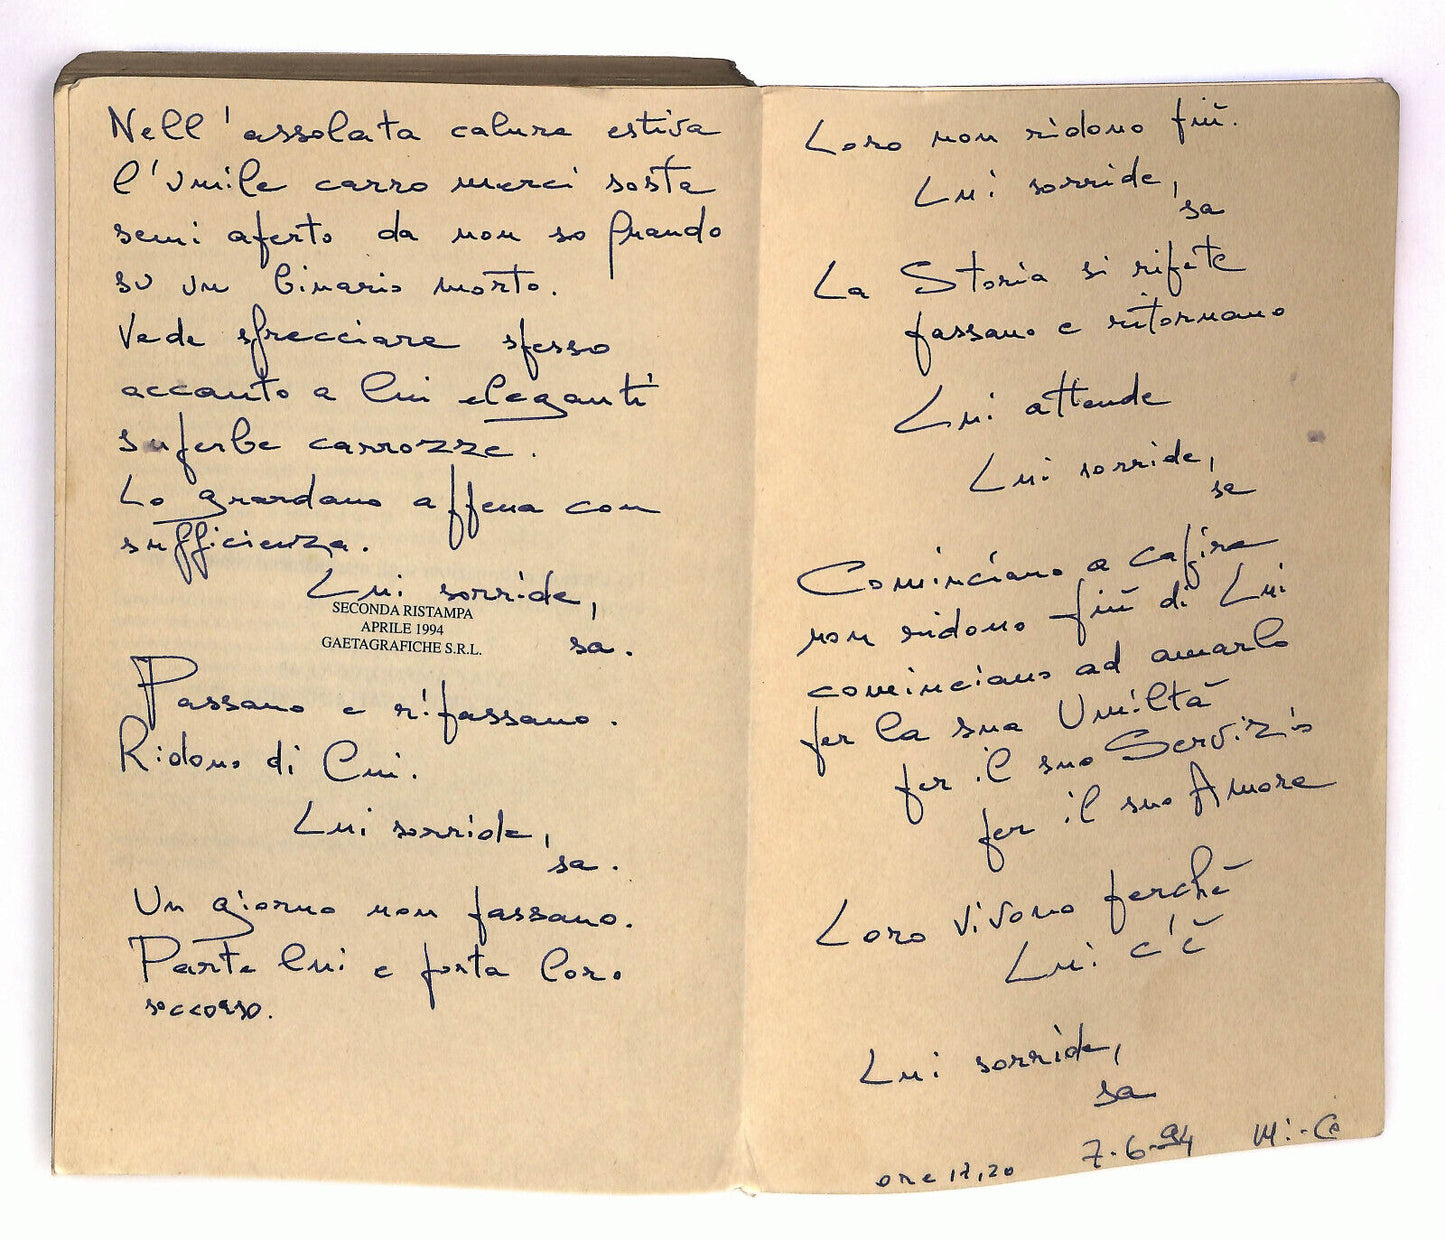 Nell'assolata calura estiva
l'umile carro merci sosta
semi aperto da non so quando
su un binario morto.
Vede sfrecciare spesso
accanto a lui eleganti
superbe carrozze.
Lo guardano appena con
sufficienza.
Lui sorride,
SECONDA RISTAMPA
APRILE 1994
GAETAGRAFICHE S.R.L.
sa.
Passano e ripassano.
Ridono di Lui.
Lui sorride,
sa.
Un giorno non passano.
Parte lui e porta loro
soccorso.
Loro non ridono più.
Lui sorride,
sa
La Storia si ripete
passano e ritornano
Lui attende
Lui sorride,
sa
Cominciano a capire
non ridono più di Lui
cominciano ad amarlo
per la sua Umiltà
per il suo Servizio
per il suo Amore
Loro vivono perché
Lui c'è
Lui sorride,
sa
7-6-94 Mi-Cè
ore 17,20